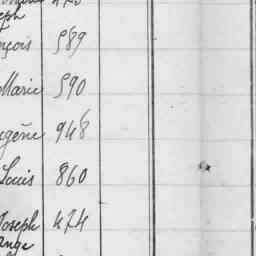 eph
nçois 589
Marie 590
ugène 948
Louis 860
Joseph 474
ange